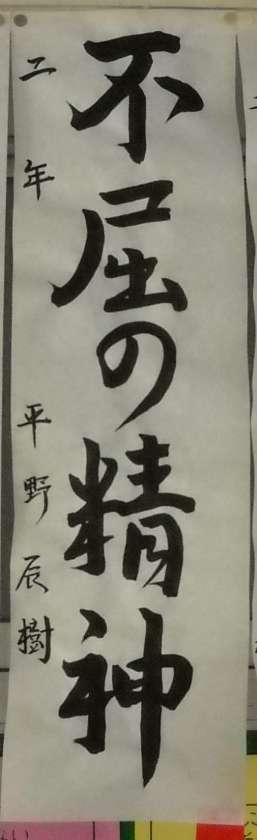 不屈の精神
二年 平野辰樹